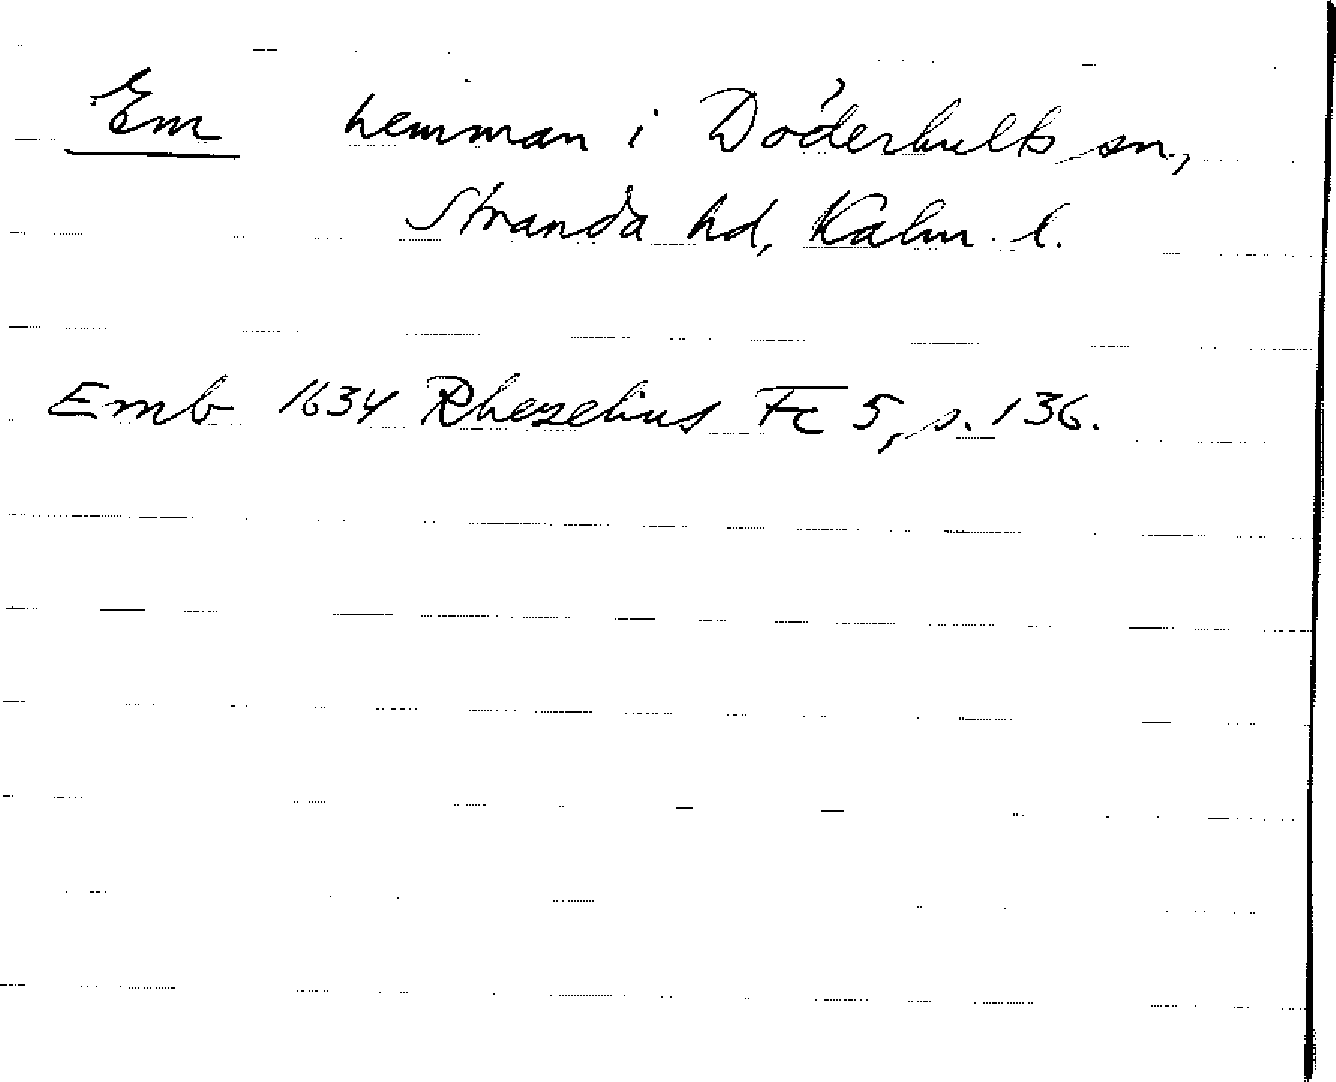 Em hemman i Döderhults sn,
Stranda hd, Kalm. l.
Emb 1634 Rhezelius Fc 5, s. 136.